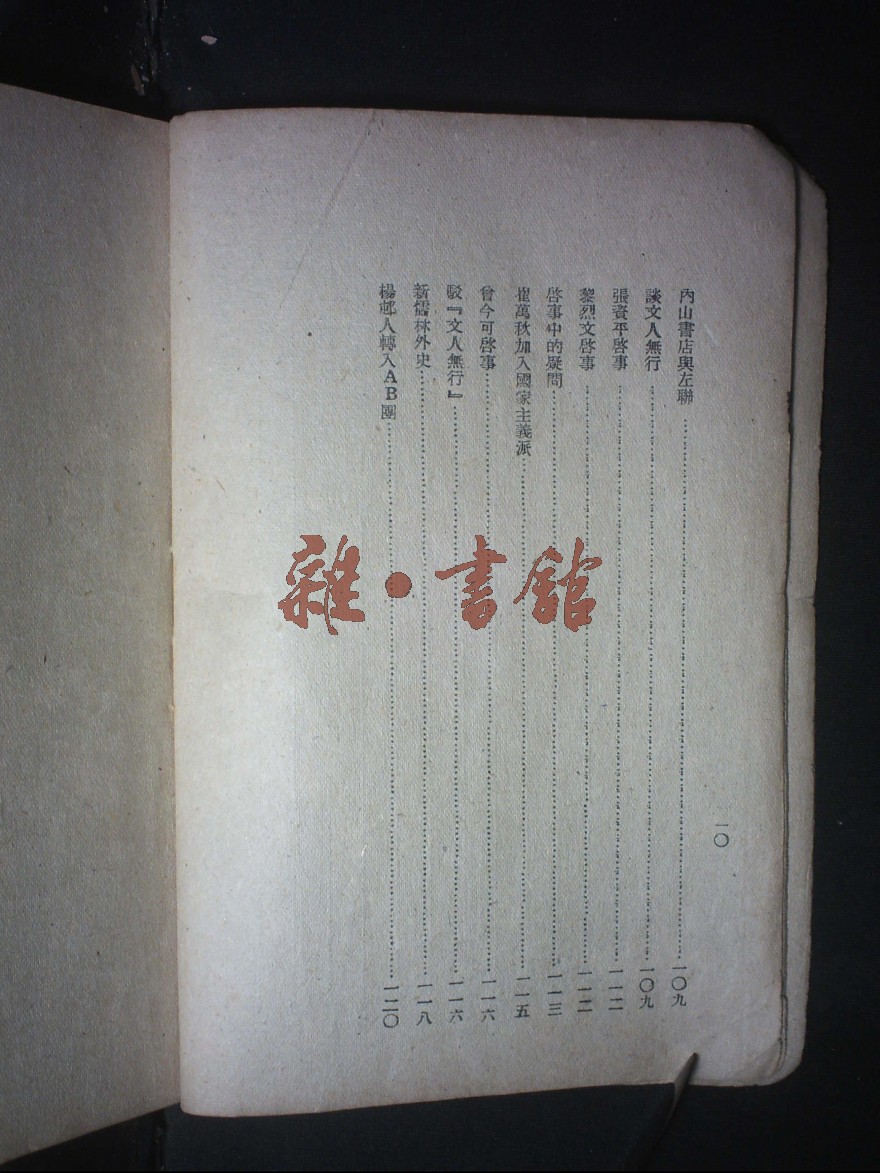 一〇
內山書店與左聯……一〇九
談文人無行……一〇九
張資平啓事……一一二
黎烈文啓事……一一二
啓事中的疑問……一一三
崔萬秋加入國家主義派……一一五
曾今可啓事……一一六
駁『文人無行』……一一六
新儒林外史……一一八
楊邨人轉入AB團……一二〇
雜·書館